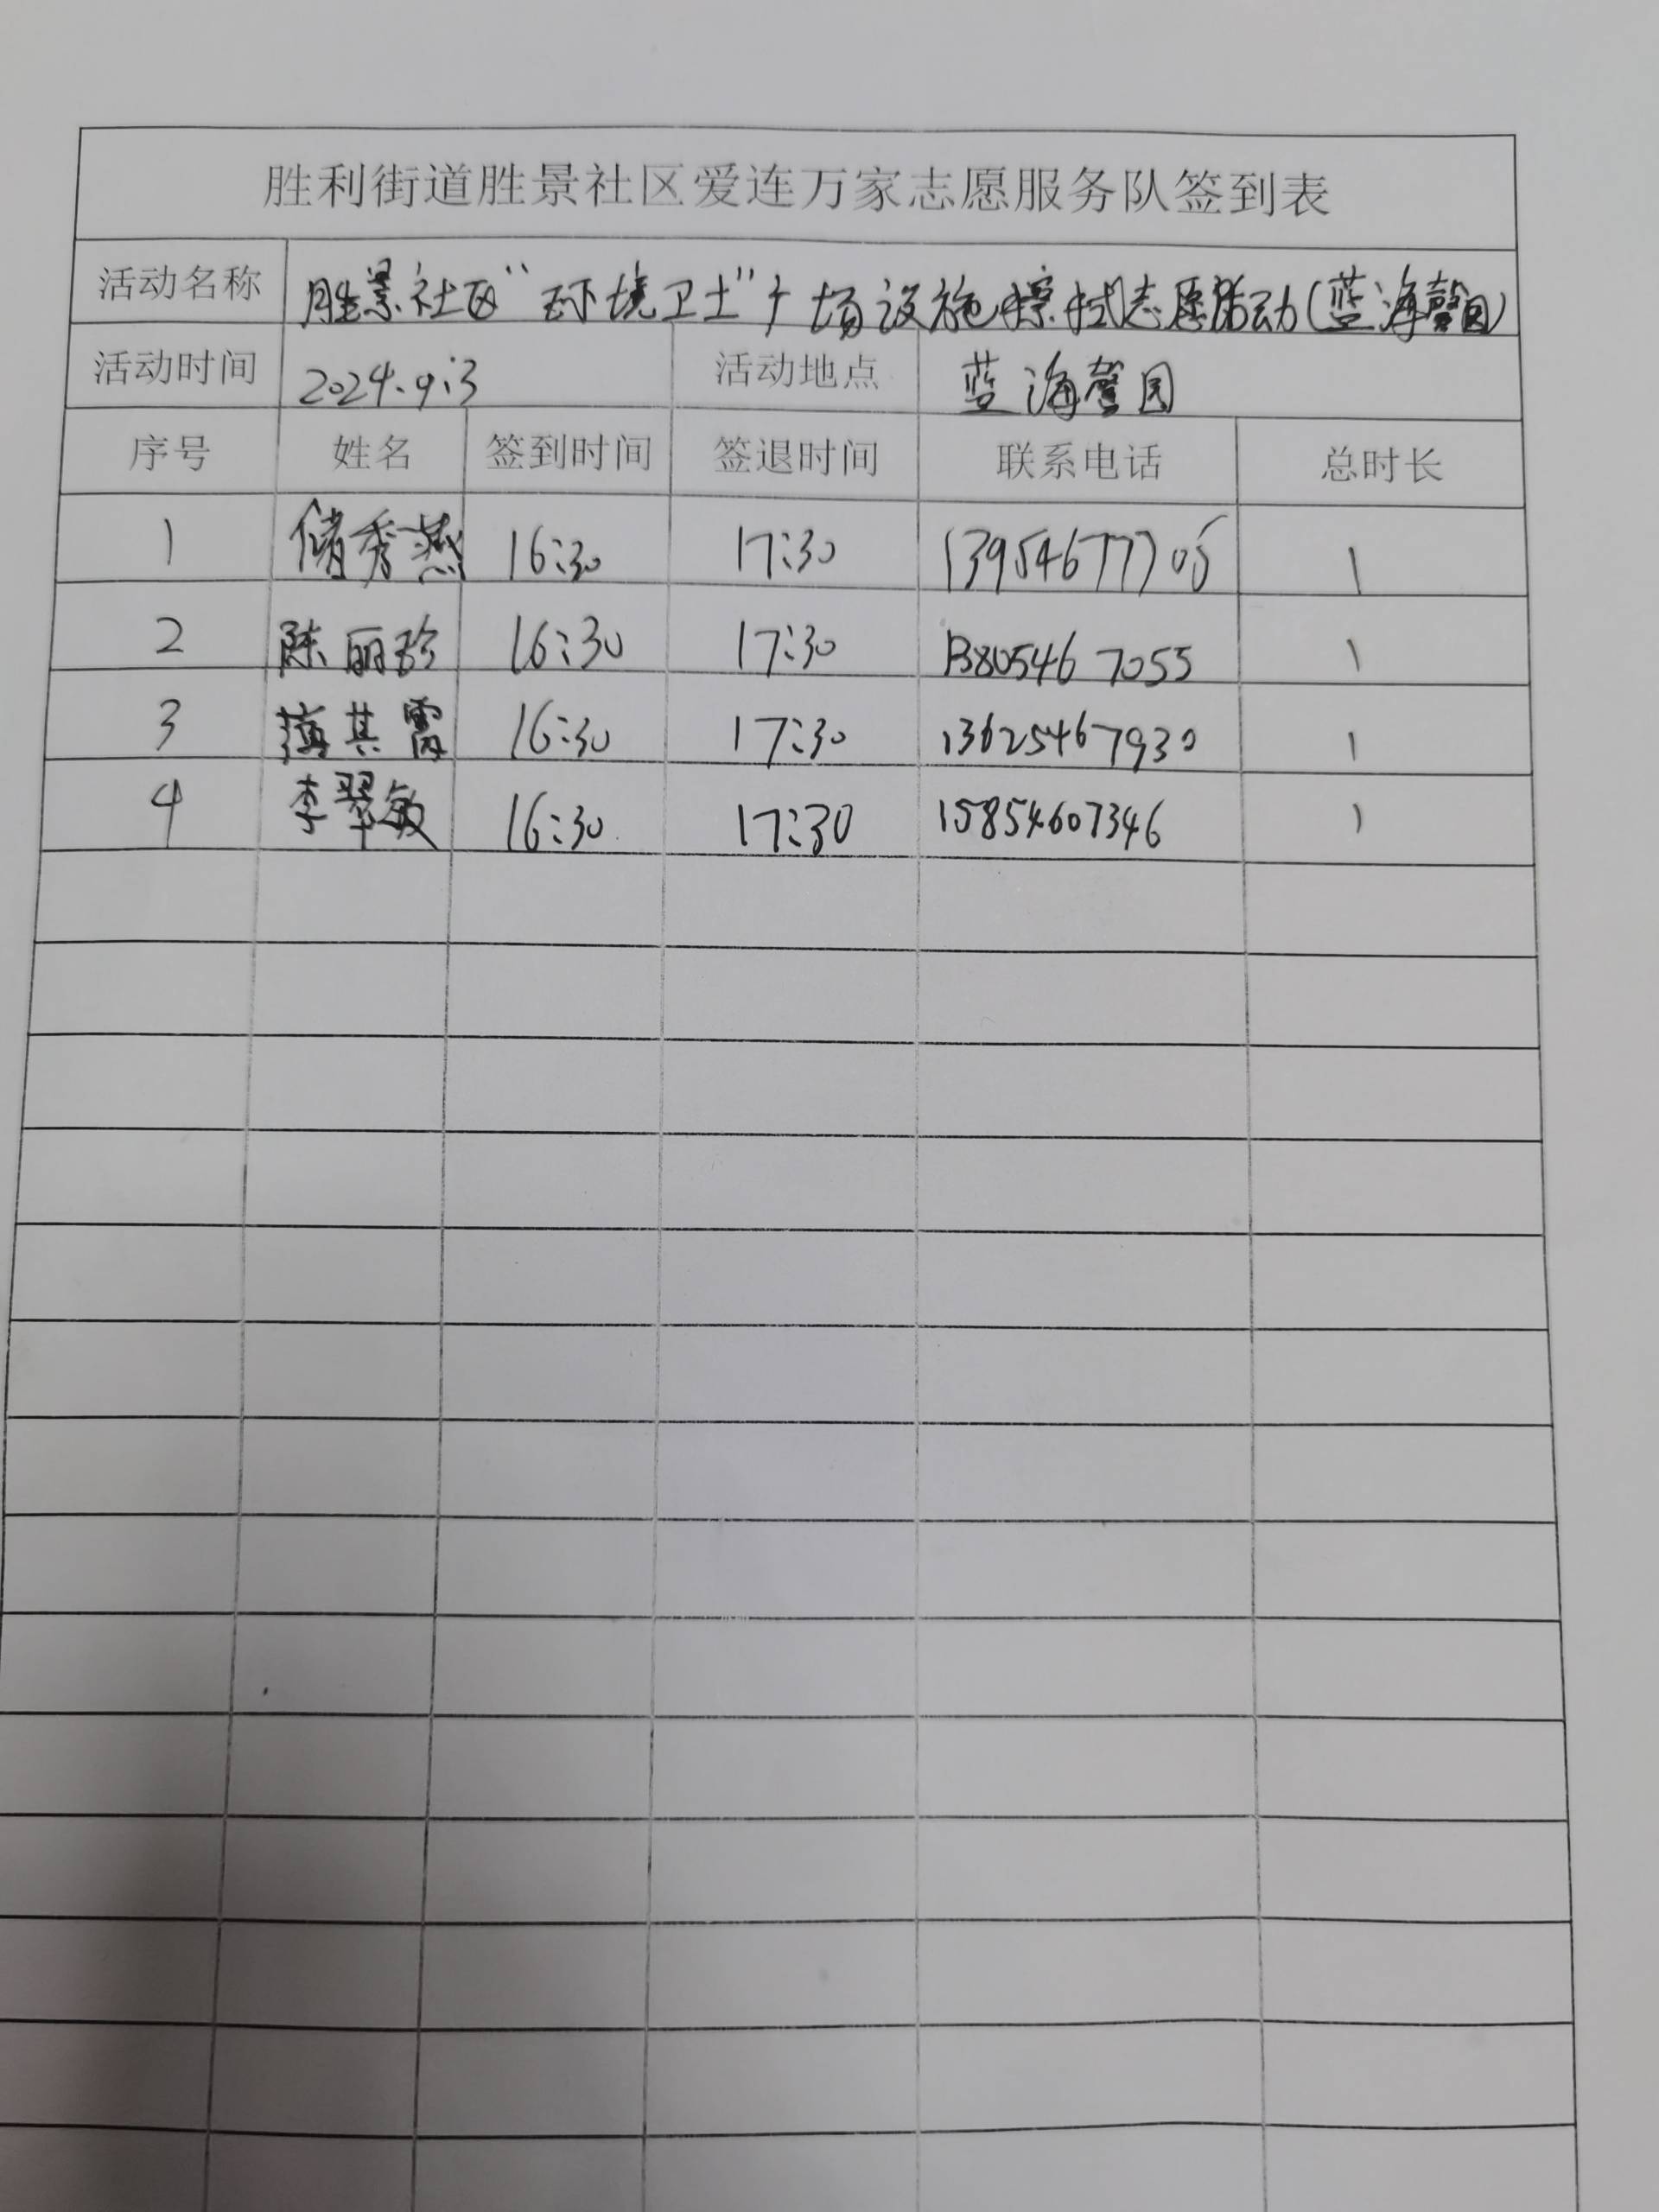 胜利街道胜景社区爱连万家志愿服务队签到表
活动名称 胜景社区“环境卫士”广场设施擦拭志愿活动(蓝海馨园)
活动时间 2024.9.3 活动地点 蓝海馨园
序号 姓名 签到时间 签退时间 联系电话 总时长
1 储秀燕 16:30 17:30 13954677705 1
2 陈丽珍 16:30 17:30 13805467055 1
3 其雷 16:30 17:30 13625467930 1
4 李翠敏 16:30 17:30 15854607346 1